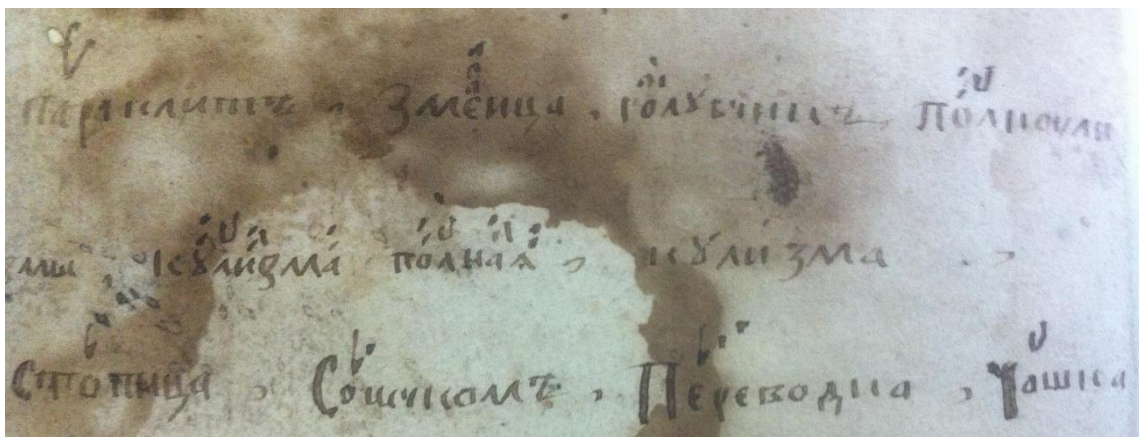 Параклитъ, Змеица, голубчикъ, Полнокули
змы, Кулизма полная, кулизма,
Стопица, Сочкомъ, Переводка, Чашка